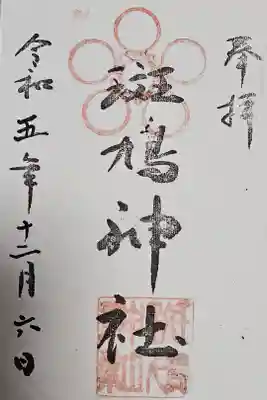 奉拝
斑鳩神社
令和五年十二月六日